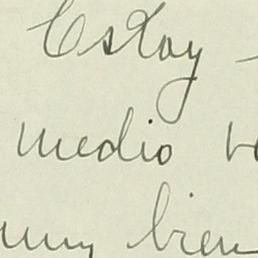 Estoy
medio
muy bien